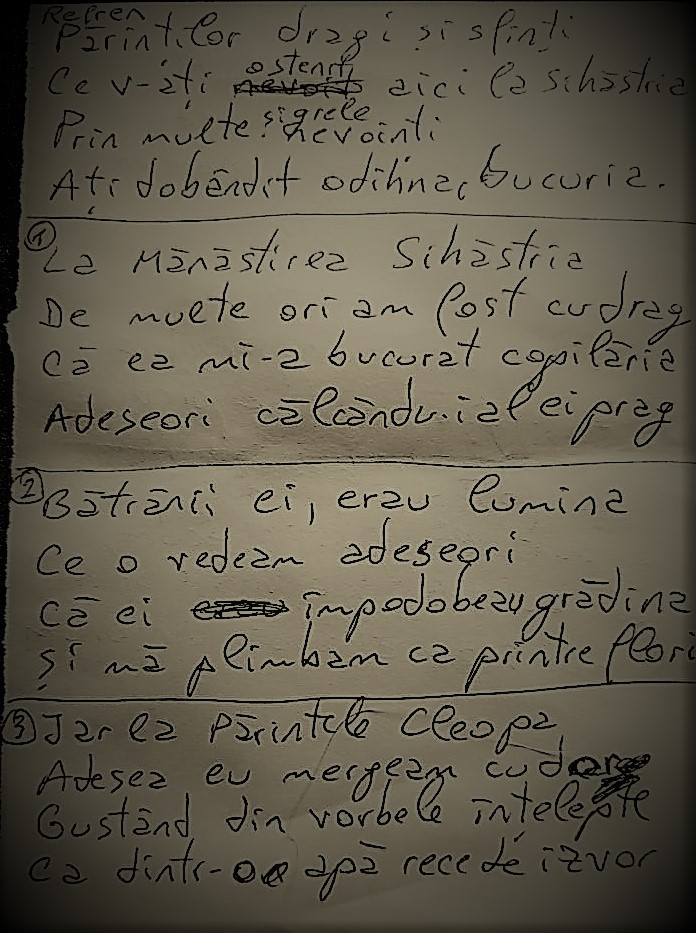 Refren
Părinților dragi și sfinți
Ce v-ați ostenit aici la Sihăstria
Prin multe și grele nevoinți
Ați dobândit odihna, bucuria.
1 La Mănăstirea Sihăstria
De multe ori am fost cu drag
Că ea mi-a bucurat copilăria
Adeseori călcându-i al ei prag
2 Bătrânii ei, erau lumina
Ce o vedeam adeseori
Că ei împodobeau grădina
Și mă plimbam ca printre flori
3 Iar la Părintele Cleopa,
Adesea eu mergeam cu dor
Gustând din vorbele înțelepte
Ca dintr-o apă rece de izvor